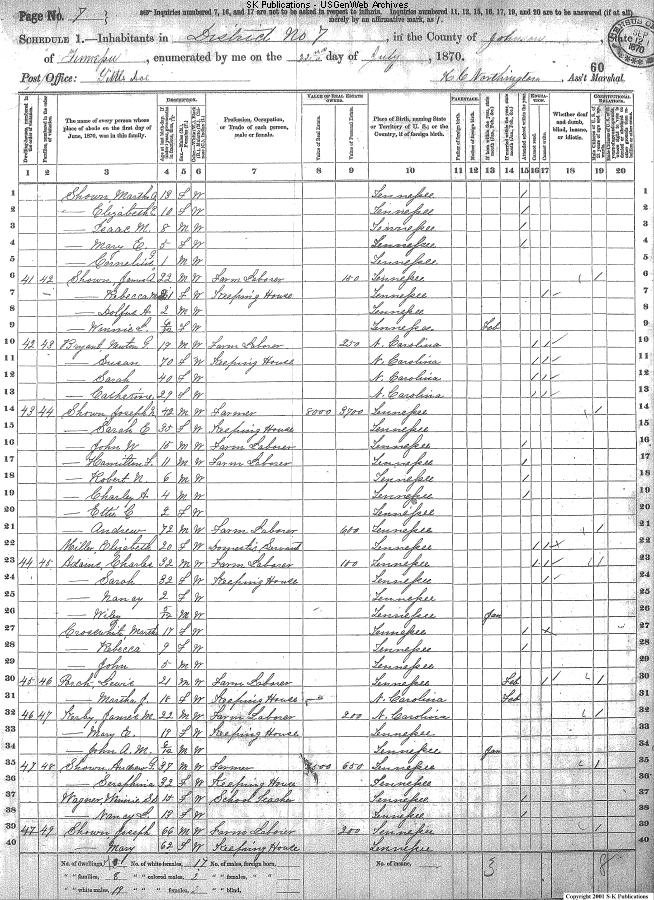 SK Publications - USGenWeb Archives
Page No. 7
Inquiries numbered 7, 16, and 17 are not to be asked in respect to infants. Inquiries numbered 11, 12, 15, 16, 17, 19, and 20 are to be answered (if at all) merely by an affirmative mark, as /.
SCHEDULE 1.—Inhabitants in District No 7, in the County of Johnson, State
of Tennessee, enumerated by me on the 22nd day of July, 1870.
60
Post Office: H. C. Worthington, Ass't Marshal.
CENSUS OF 1870
The name of every person whose place of abode on the first day of June, 1870, was in this family.
DESCRIPTION.
Profession, Occupation, or Trade of each person, male or female.
VALUE OF REAL ESTATE OWNED.
Value of Real Estate.
Value of Personal Estate.
Place of Birth, naming State or Territory of U. S.; or the Country, if of foreign birth.
PARENTAGE.
Father of foreign birth.
Mother of foreign birth.
Attended school within the year.
Cannot read.
Cannot write.
Whether deaf and dumb, blind, insane, or idiotic.
CONSTITUTIONAL RELATIONS.
1 2 3 4 5 6 7 8 9 10 11 12 13 14 15 16 17 18 19 20
1 Shown, Martha 13 F W Tennessee / 1
2 — Elizabeth E. 10 F W Tennessee / 2
3 — Isaac M. 8 M W Tennessee / 3
4 — Mary E. 5 F W Tennessee / 4
5 — Cornelius 1 M W Tennessee 5
6 41 42 Shown, 22 M W Farm Laborer 150 Tennessee / 6
7 — Rebecca 21 F W Keeping House Tennessee / 7
8 — Dolfus A. 2 M W Tennessee 8
9 — Winnie L. F W Tennessee Feb 9
10 42 43 Bryant 19 M W Farm Laborer 250 N. Carolina / / 10
11 — Susan 70 F W Keeping House N. Carolina / / 11
12 — Sarah 40 F W N. Carolina / / 12
13 — Catherine 29 F W N. Carolina / / 13
14 43 44 Shown, Joseph 42 M W Farmer 8000 2700 Tennessee / 14
15 — Sarah E 35 F W Keeping House Tennessee 15
16 — John W 15 M W Farm Laborer Tennessee / 16
17 — Hamilton 11 M W Farm Laborer Tennessee / 17
18 — Robert N. 6 M W Tennessee / 18
19 — Charley A. 4 M W Tennessee / 19
20 — Ettie C 2 F W Tennessee 20
21 — Andrew 72 M W Farm Laborer 600 Tennessee / 21
22 Miller, Elizabeth 20 F W Domestic Servant Tennessee / / 22
23 44 45 Adams, Charles 32 M W Farm Laborer 100 Tennessee / / / 23
24 — Sarah 32 F W Keeping House Tennessee / / 24
25 — Nancy 2 F W Tennessee 25
26 — Wiley M W Tennessee Jan 26
27 Crosswhite, Martha 17 F W Tennessee / 27
28 — Rebecca 9 F W Tennessee / 28
29 — John 5 M W Tennessee 29
30 45 46 Lewis 21 M W Farm Laborer Tennessee Feb / / / 30
31 — Martha J. 18 F W Keeping House N. Carolina Feb 31
32 46 47 James M. 22 M W Farm Laborer 200 N. Carolina / 32
33 — Mary E. 19 F W Keeping House Tennessee 33
34 — John A. M. M W Tennessee Jan 34
35 47 48 Shown, Andrew 37 M W Farmer 650 Tennessee / 35
36 — Seraphina 32 F W Keeping House Tennessee 36
37 Wagner, Winnie 14 F W School Teacher Tennessee / 37
38 — Nancy L. 19 F W Tennessee / 38
39 47 49 Shown, Joseph 66 M W Farm Laborer 200 Tennessee / 39
40 — Mary 62 F W Keeping House Tennessee 40
No. of dwellings, No. of white females, 17 No. of males, foreign born, No. of insane, 3 8
" " families, 8 " " colored males, " " females,
" " white males, 19 " " females, " " blind,
Copyright 2001 S-K Publications